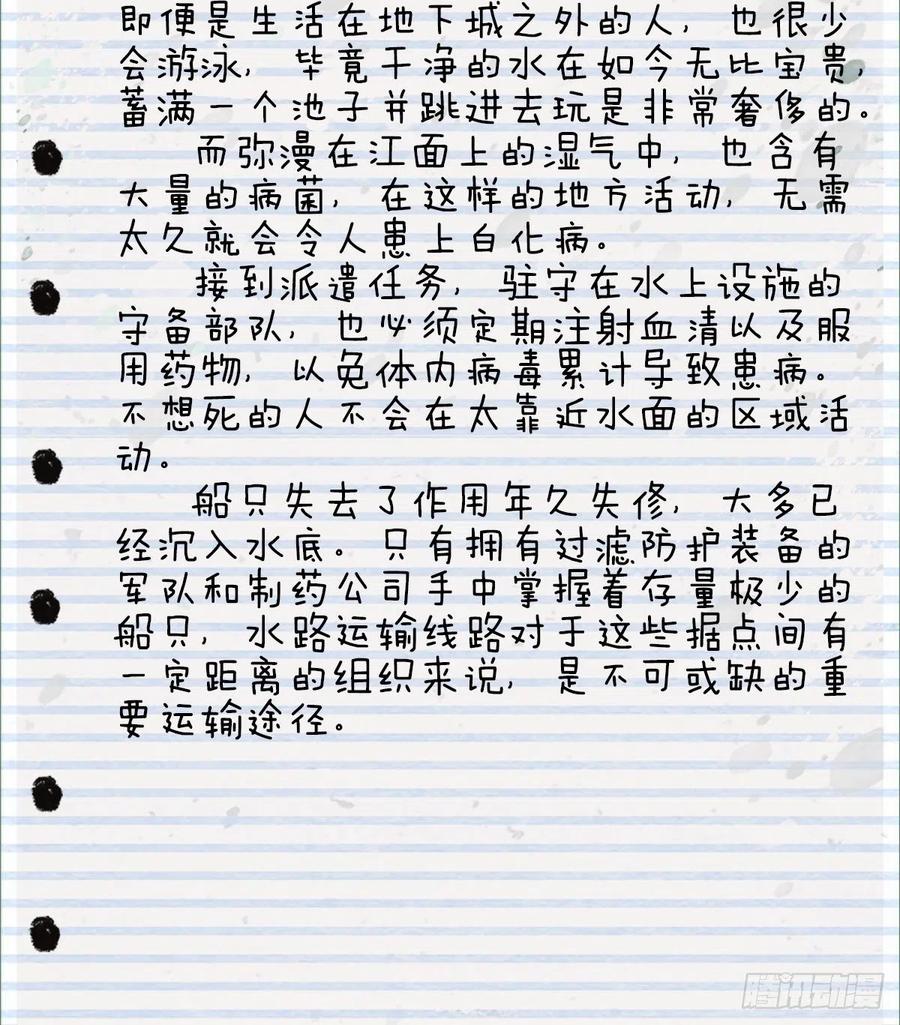 即便是生活在地下城之外的人，也很少
会游泳，毕竟干净的水在如今无比宝贵，
蓄满一个池子并跳进去玩是非常奢侈的。
而弥漫在江面上的湿气中，也含有
大量的病菌，在这样的地方活动，无需
太久就会令人患上白化病。
接到派遣任务，驻守在水上设施的
守备部队，也必须定期注射血清以及服
用药物，以免体内病毒累计导致患病。
不想死的人不会在太靠近水面的区域活
动。
船只失去了作用年久失修，大多已
经沉入水底。只有拥有过滤防护装备的
军队和制药公司手中掌握着存量极少的
船只，水路运输线路对于这些据点间有
一定距离的组织来说，是不可或缺的重
要运输途径。
腾讯动漫